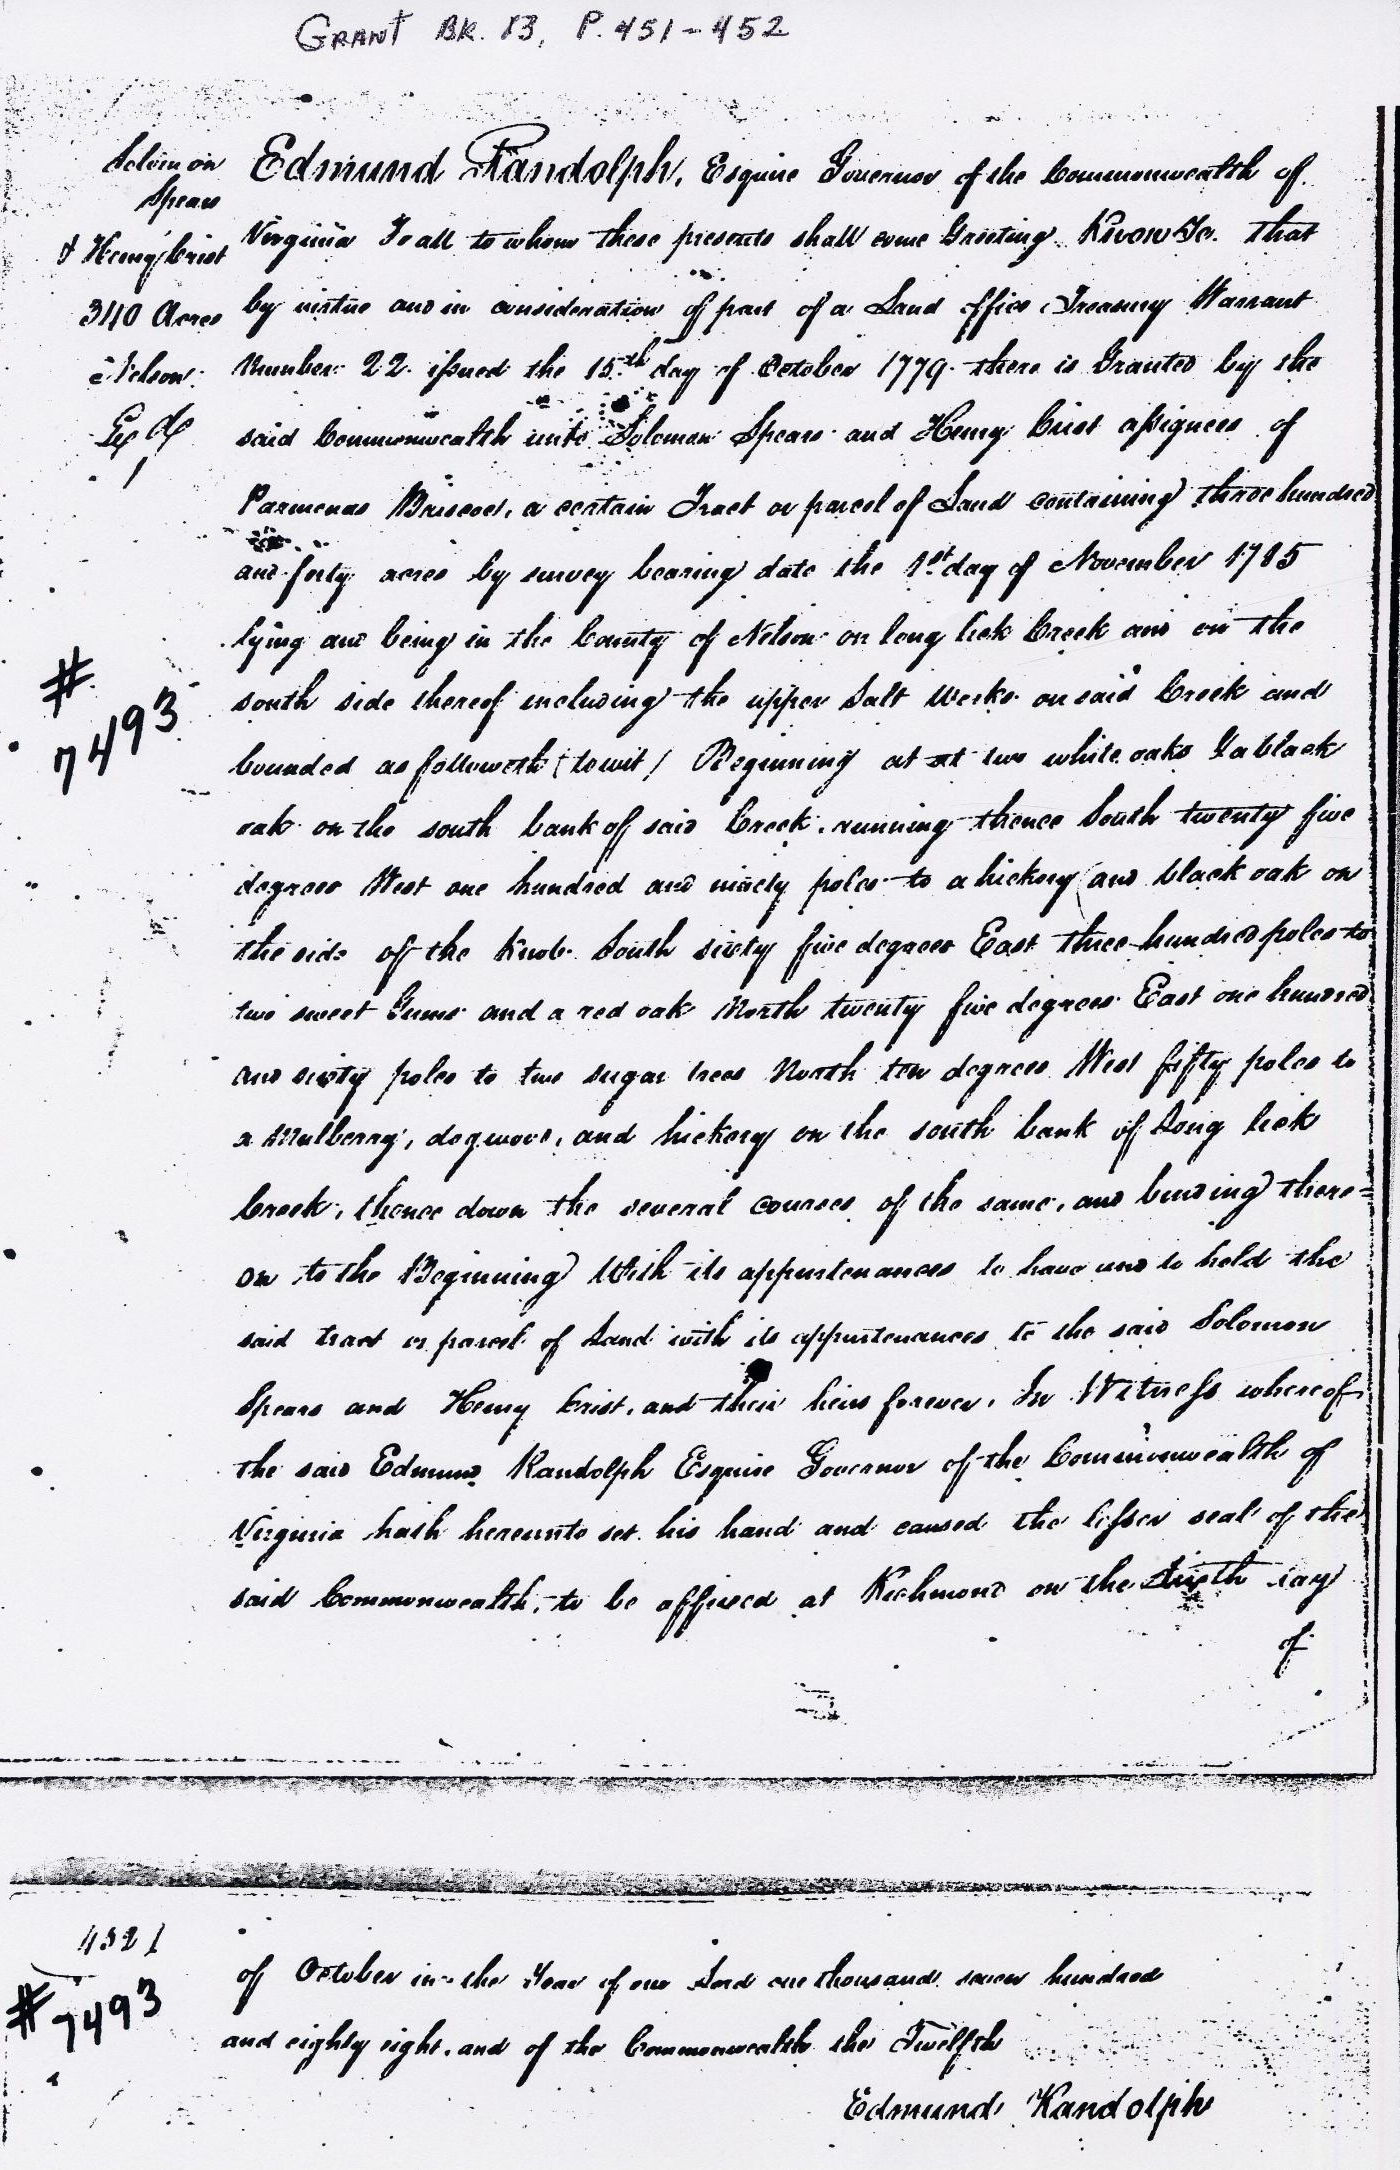 GRANT BK. 13, P. 451-452
Solomon
Spears
& Henry Crist
340 Acres
Nelson
Ex d
Edmund Randolph, Esquire Governor of the Commonwealth of
Virginia To all to whom these presents shall come Greeting Know Ye that
by virtue and in consideration of part of a Land office Treasury Warrant
Number 22 issued the 15th day of October 1779 there is Granted by the
said Commonwealth unto Solomon Spears and Henry Crist assignees of
Parmenas Briscoe, a certain Tract or parcel of Land containing three hundred
and forty acres by survey bearing date the 1st day of November 1785
lying and being in the County of Nelson on long lick Creek and on the
south side thereof including the upper Salt Works on said Creek and
bounded as followeth (towit) Beginning at at two white oaks & a black
oak on the south bank of said Creek, running thence South twenty five
degrees West one hundred and ninety poles to a hickory and black oak on
the side of the Knob South sixty five degrees East three hundred poles to
two sweet Gums and a red oak North twenty five degrees East one hundred
and sixty poles to two sugar trees North ten degrees West fifty poles to
a Mulberry, dogwood, and hickory on the south bank of Long lick
Creek, thence down the several courses of the same, and binding there=
on to the Beginning With its appurtenances to have and to hold the
said tract or parcel of Land with its appurtenances to the said Solomon
Spears and Henry Crist, and their heirs forever, In Witness whereof
the said Edmund Randolph Esquire Governor of the Commonwealth of
Virginia hath hereunto set his hand and caused the lesser seal of the
said Commonwealth, to be affixed at Richmond on the day
of
# 7493
452
# 7493
of October in the Year of our Lord one thousand seven hundred
and eighty eight, and of the Commonwealth the Twelfth
Edmund Randolph